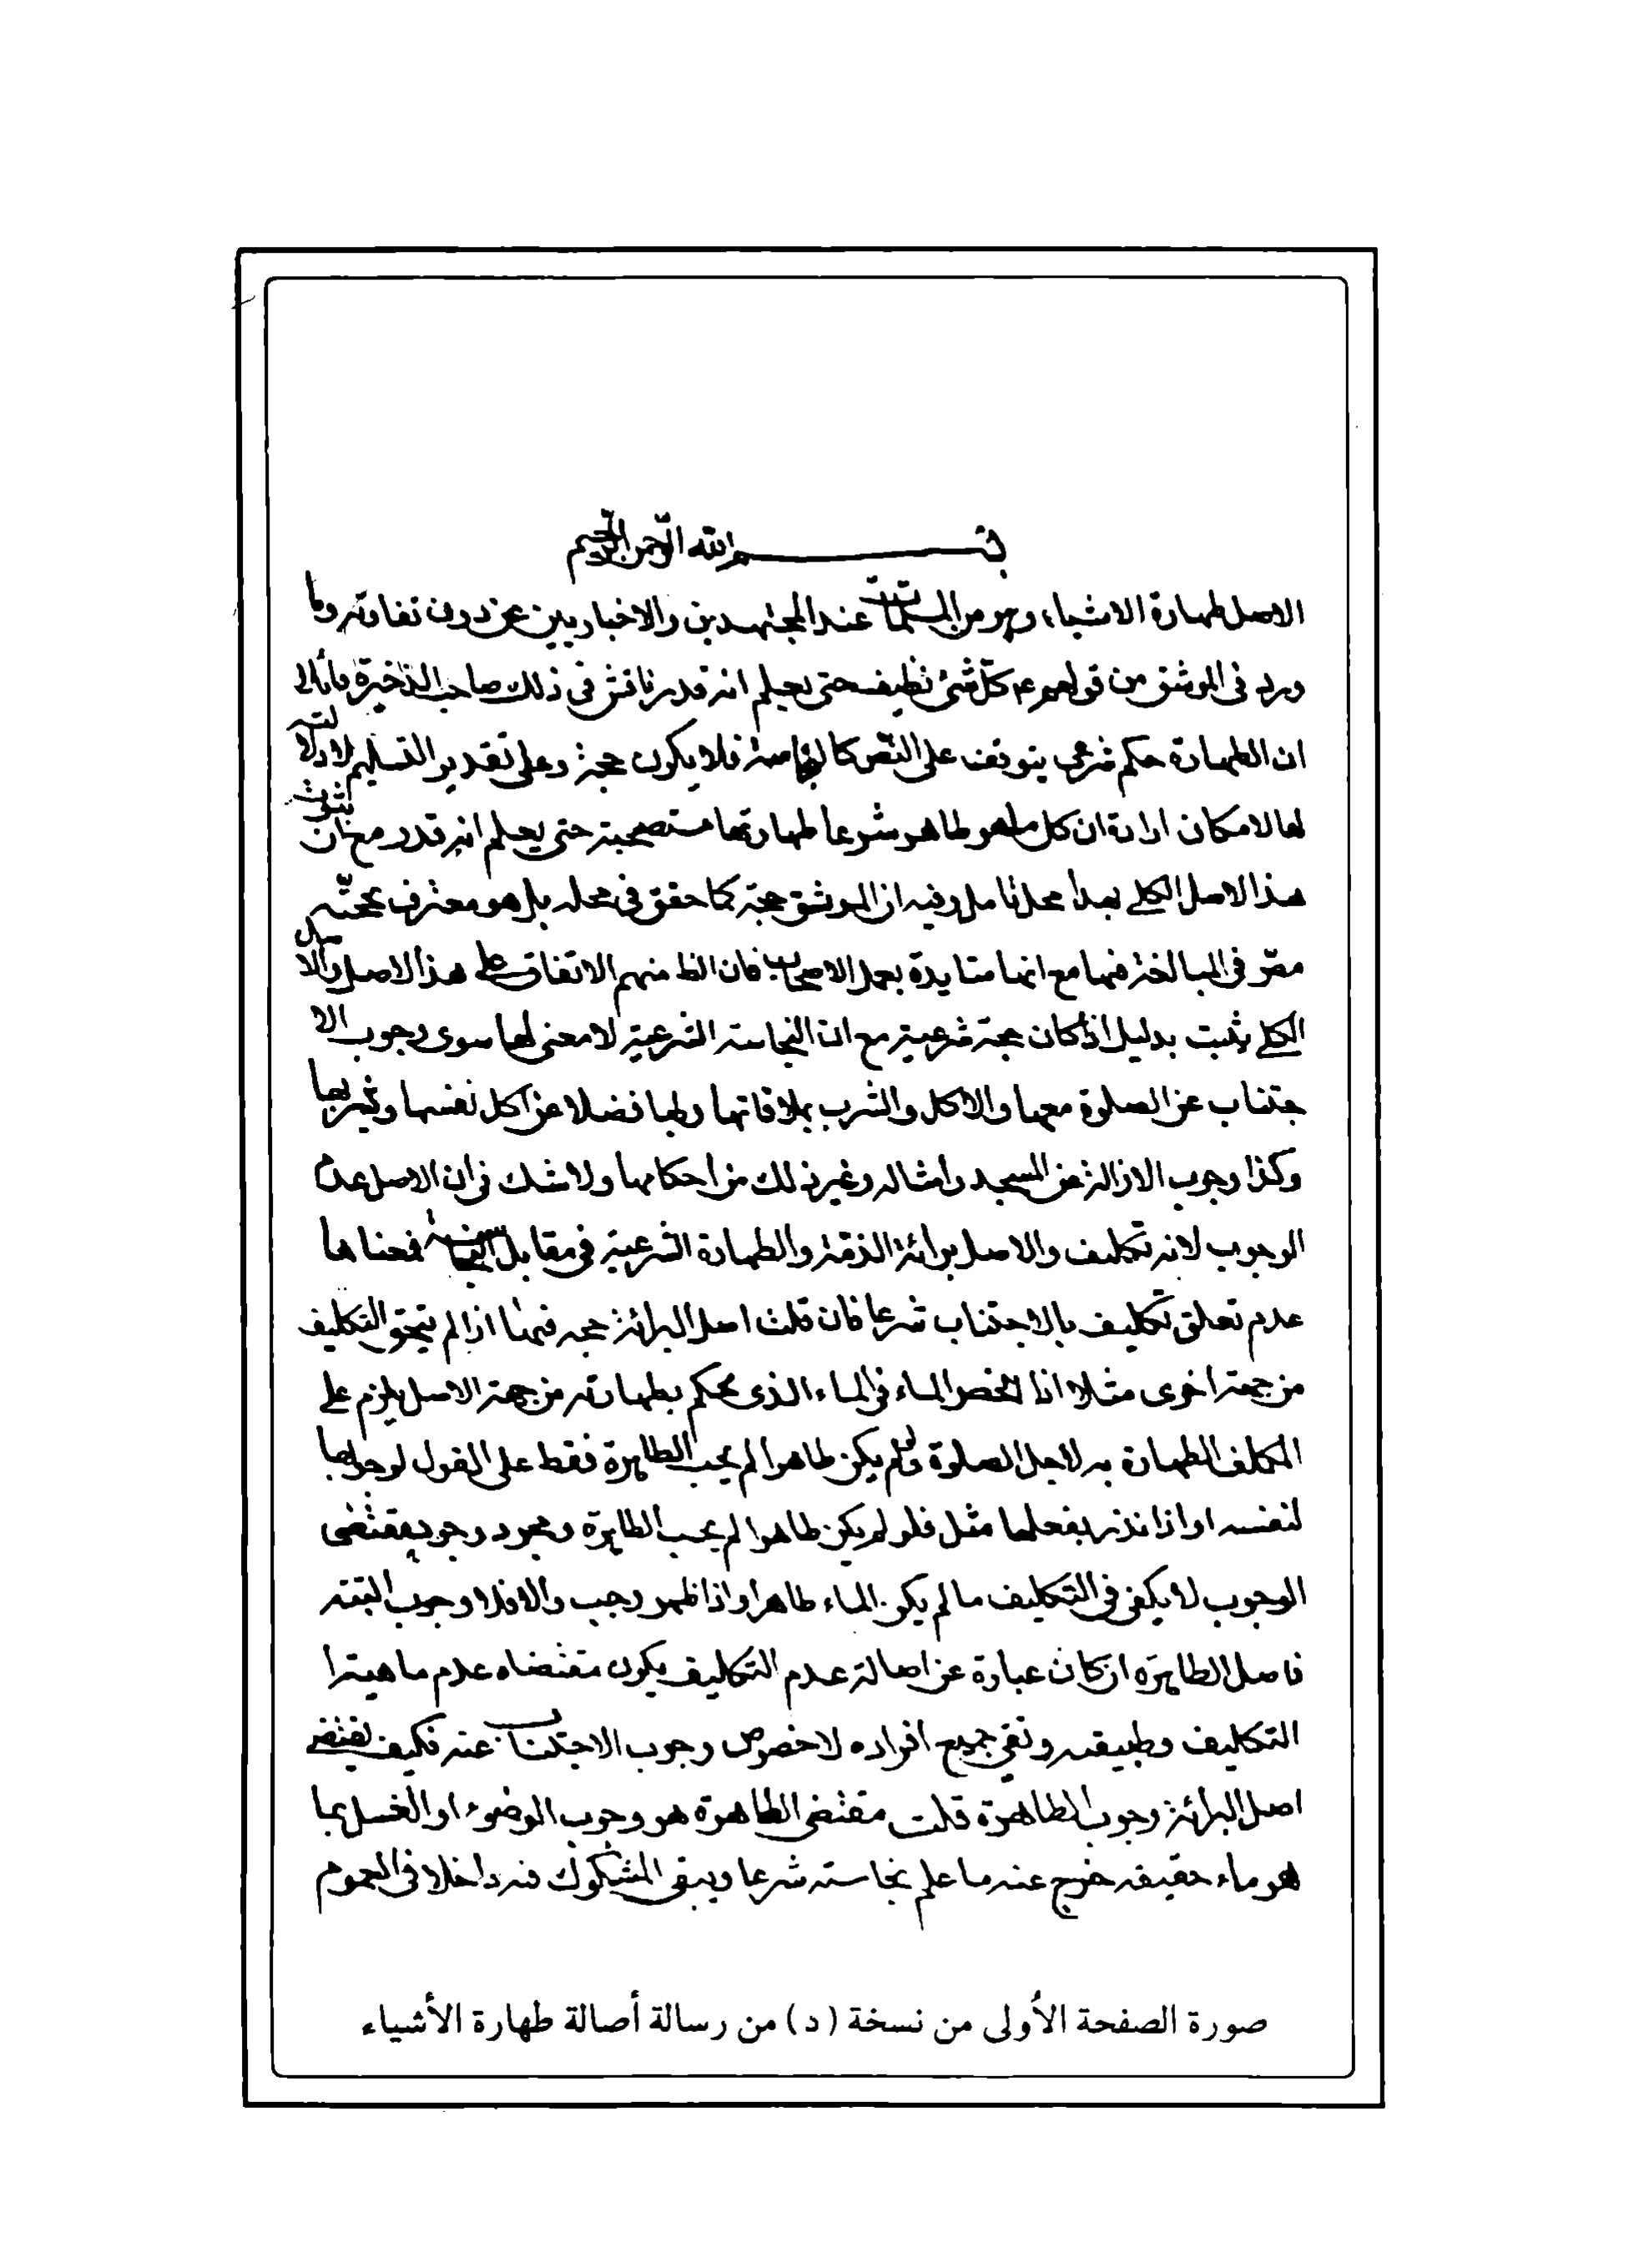 بسم الله الرحمن الرحيم
الاصل طهارة الاشياء وهو من المسلمات عند المجتهدين والاخباريين من دون تفاوت وما
ورد فى الموثق من قولهم ع كل شئ نظيف حتى يعلم انه قذر ناقش فى ذلك صاحب الذخيرة
ان الطهارة حكم شرعى يتوقف على النص كالنجاسة فلا يكون حجة وعلى تقدير التسليم لا دلالة
لها لامكان ارادة ان كل ما هو طاهر شرعا طهارتها مستصحبة حتى يعلم انه قذر مع ان ثبوت
هذا الاصل الكلى بهذا محل تامل وفيه ان الموثق حجة كما حقق فى محله بل هو معترف بحجيته
مصر فى المبالغة فيها مع انها متايدة بعمل الاصحاب فان الظ منهم الاتفاق على هذا الاصل والاصل
الكلى يثبت بدليل اذا كان حجة شرعية مع ان النجاسة الشرعية لا معنى لها سوى وجوب الا
جتناب عن الصلوة معها والاكل والشرب بملاقاتها ولها فضلا عن اكل نفسها وشربها
وكذا وجوب الازالة عن المسجد وامثاله وغير ذلك من احكامها ولا شك فى ان الاصل عدم
الوجوب لانه تكليف والاصل برائة الذمة والطهارة الشرعية فى مقابل النجاسة فمعناها
عدم تعلق تكليف بالاجتناب شرعا فان قلت اصل البرائة حجة فيما اذا لم يتحقق التكليف
من جهة اخرى مثلا اذا انحصر الماء فى الماء الذى يحكم بطهارته من جهة الاصل يلزم على
المكلف الطهارة به لاجل الصلوة ولو لم يكن طاهرا لم يجب الطاهرة فقط على القول لوجوبها
لنفسه او اذا نذر بفعلها مثل فلو لم يكن طاهرا لم يجب الطاهرة ومجرد وجود مقتضى
الوجوب لا يكفى فى التكليف ما لم يكن الماء طاهرا واذا ظهر وجب والا فلا وجوب البتة
فاصل الطاهرة ان كان عبارة عن اصالة عدم التكليف يكون مقتضاه عدم ماهية
التكليف وطبيعته ونفى جميع افراده لا خصوص وجوب الاجتناب عنه فكيف يقتضى
اصل البرائة وجوب الطاهرة قلت مقتضى الطاهرة هو وجوب الوضوء او الغسل بما
هو ماء حقيقة خرج عنه ما علم نجاسته شرعا ويبقى المشكوك فيه داخلا فى العموم
صورة الصفحة الأولى من نسخة (د) من رسالة أصالة طهارة الأشياء